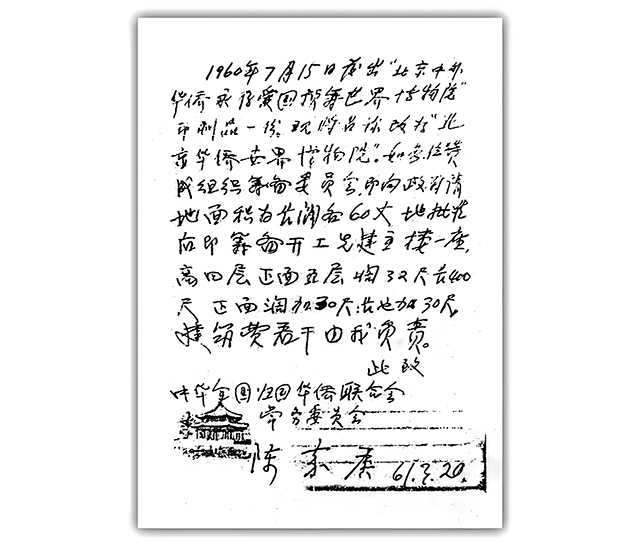 1960年7月15日寄出"北京中外
华侨永存爱国抗筹世界博物院"
印刷品一份,现将名称改为"北
京华侨世界博物院"。如蒙径赞
成组织筹备委员会,即向政府请
地面积为长阔各60丈,地批准
后即筹备开工先建主楼一座,
高四层正面五层,阔32尺长400
尺,正面阔加30尺,长也加30尺,
建筑费若干由我负责。
此致
中华全国归国华侨联合会
常务委员会
陈嘉庚 61.3.20.